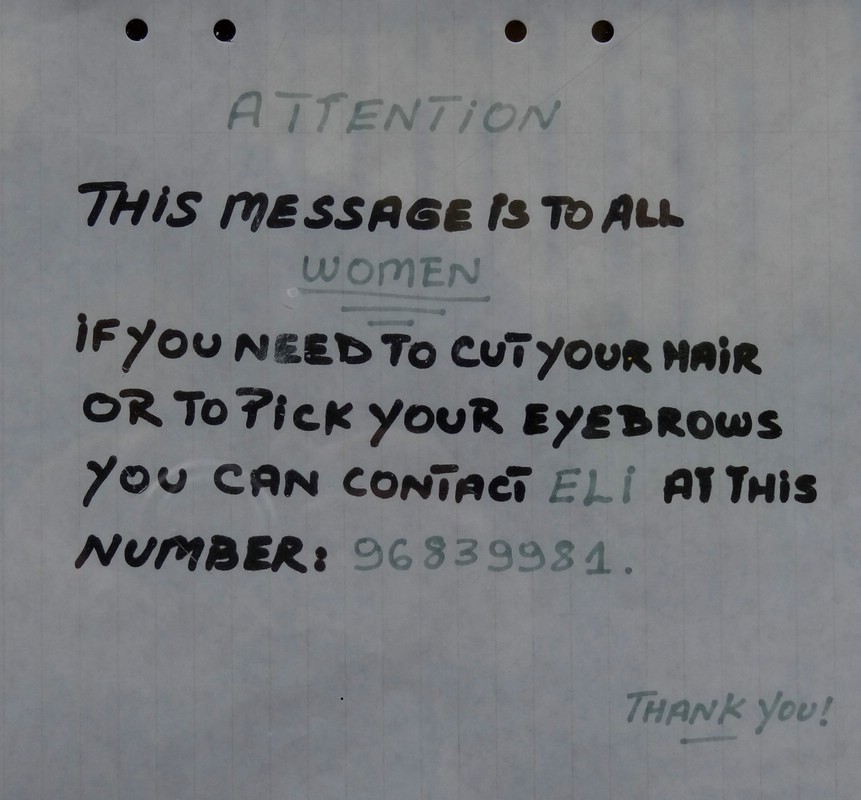 ATTENTiON
THiS MESSAGE iS TO ALL
WOMEN
iF YOU NEED TO CUT YOUR HAiR
OR TO PiCK YOUR EYEBROWS
YOU CAN CONTACT ELi AT THiS
NUMBER: 96839981.
THANK YOU!